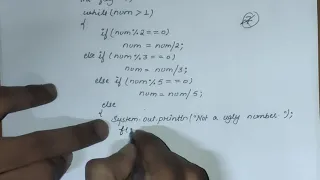 while (num > 1)
{
if (num % 2 == 0)
num = num/2;
else if (num % 3 == 0)
num = num/3;
else if (num % 5 == 0)
num = num/5;
else
{ System.out.println("Not a ugly number");